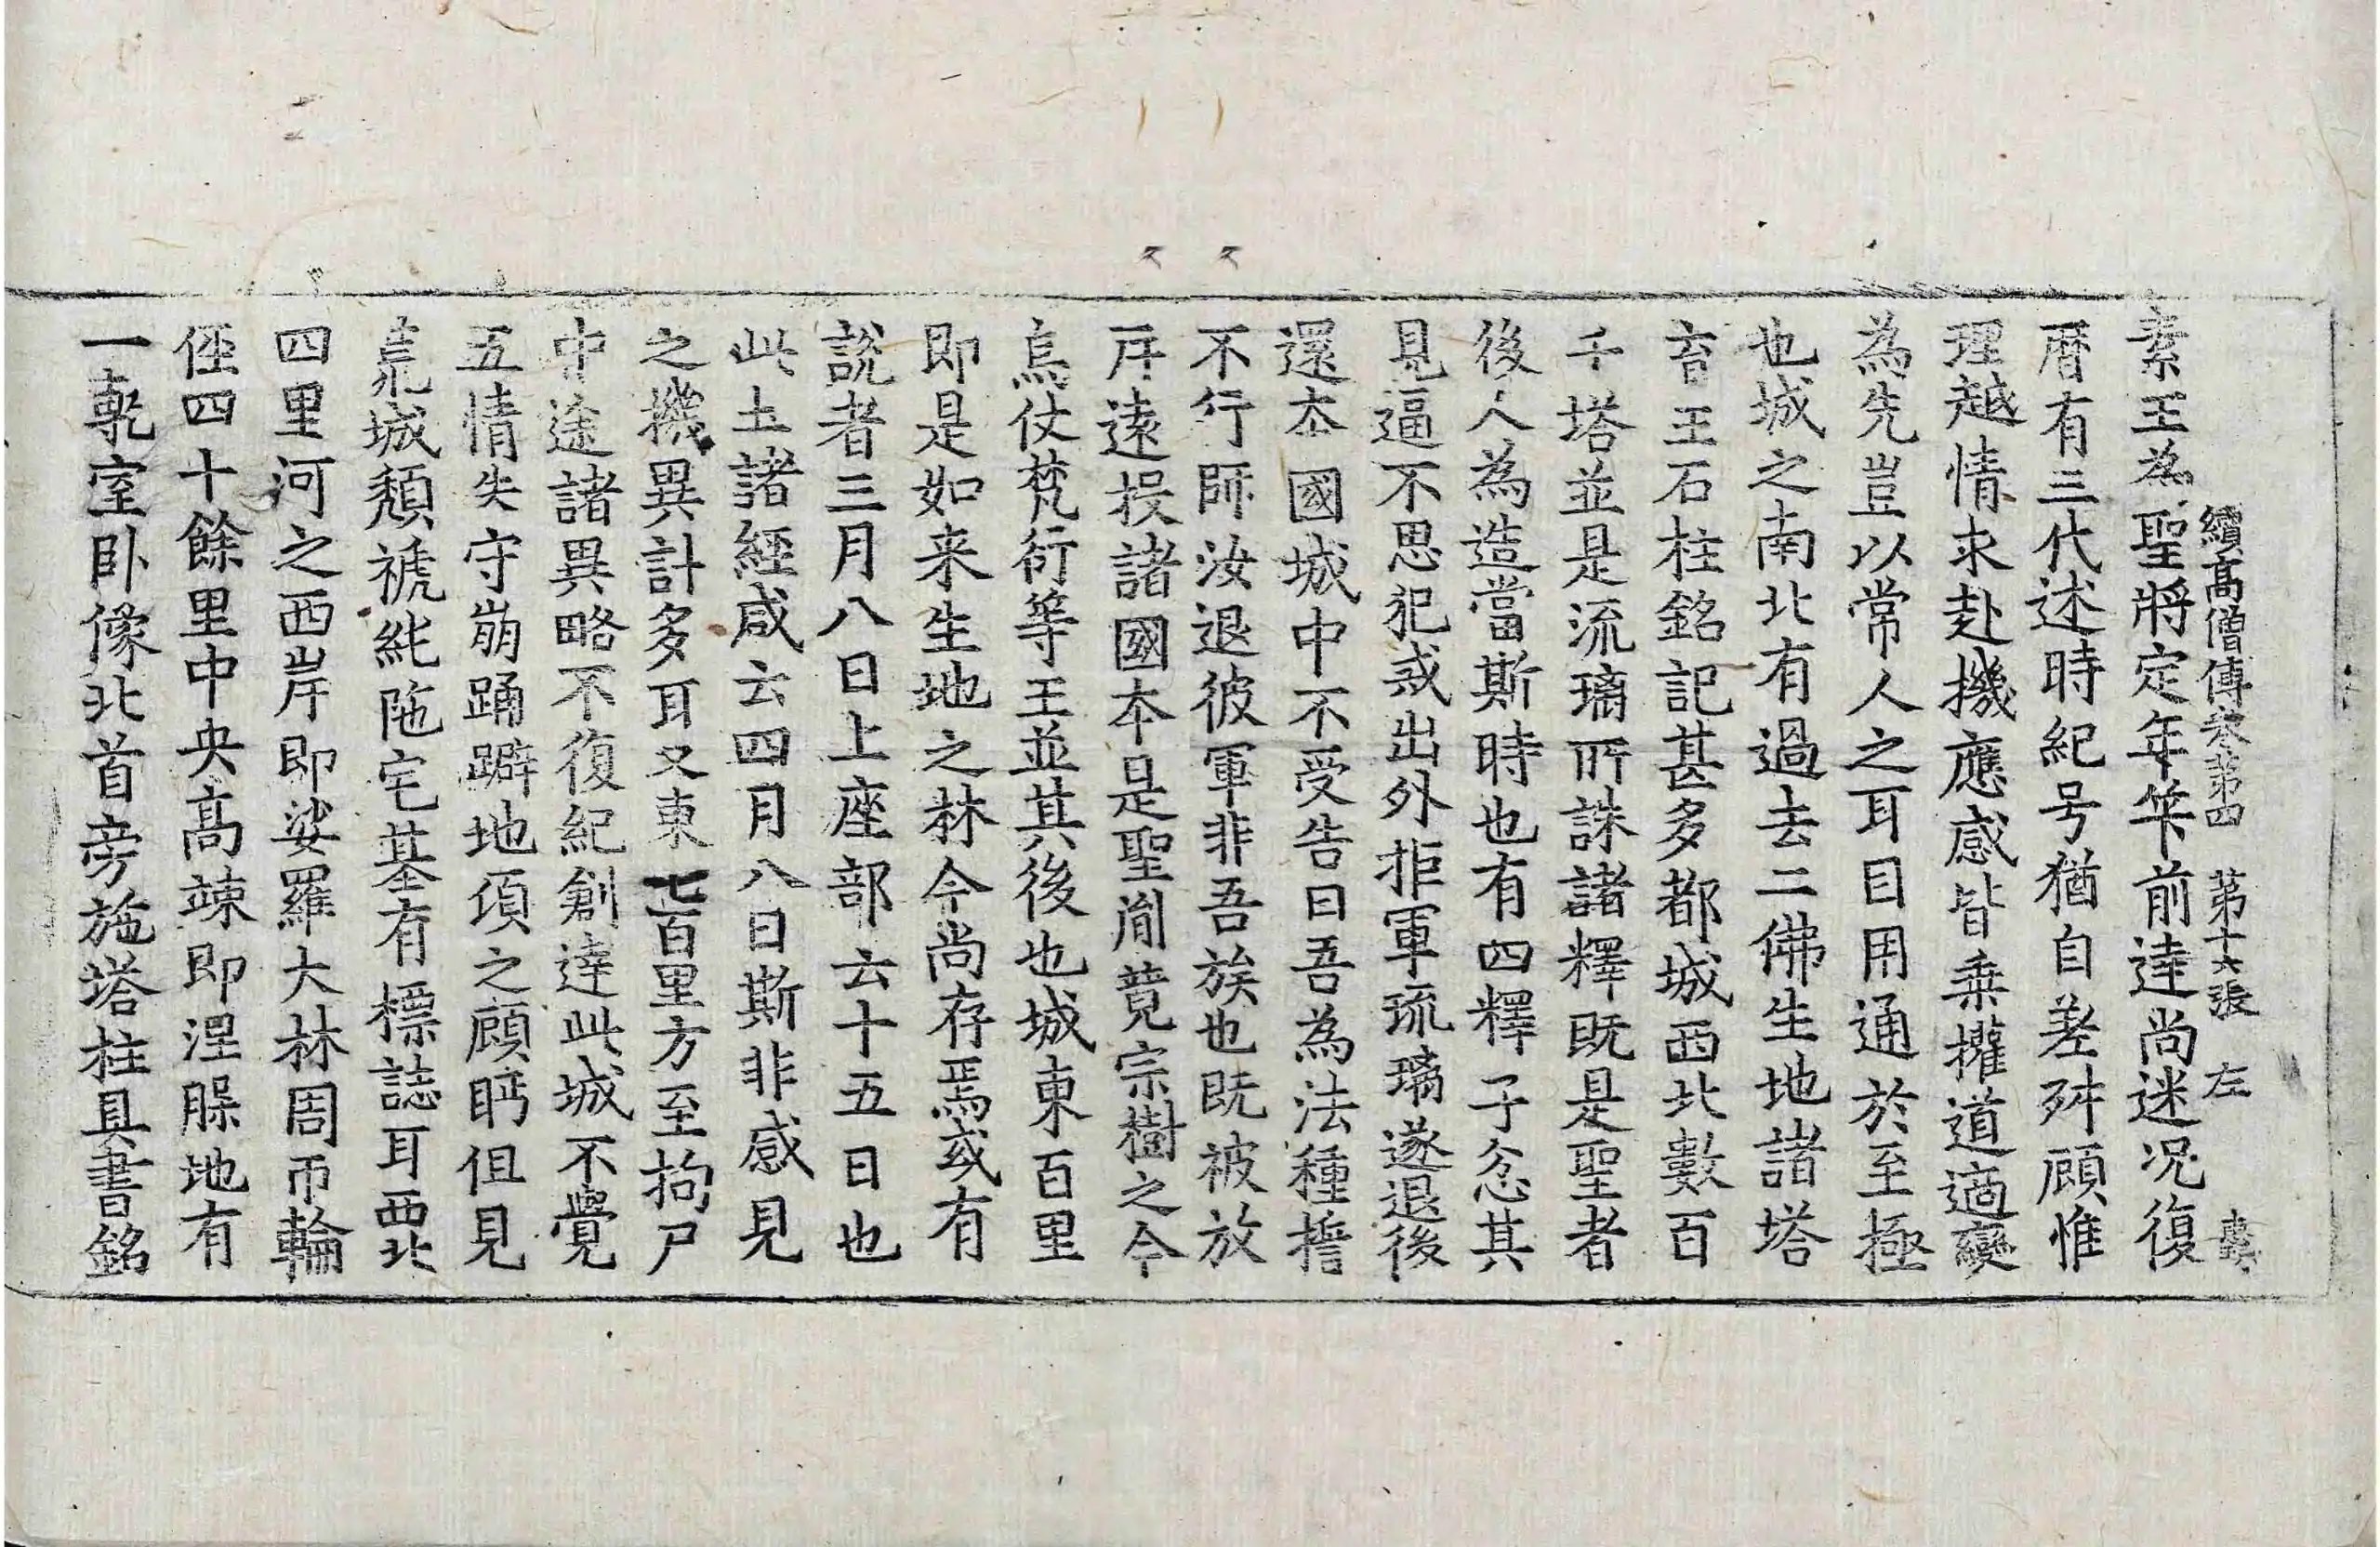 續高僧傳卷第四　第十六張　左
素王為聖將定年筭前達尚迷况復
曆有三代述時紀号猶自差舛顧惟
理越情求赴機應感皆乘權道適變
為先豈以常人之耳目用通於至極
也城之南北有過去二佛生地諸塔
育王石柱銘記甚多都城西北數百
千塔並是流璃所誅諸釋既是聖者
後人為造當斯時也有四釋子忿其
見逼不思犯戒出外拒軍琉璃遂退後
還本國城中不受告曰吾為法種誓
不行師汝退彼軍非吾族也既被放
斥遠投諸國本是聖胤竟宗樹之今
烏仗梵衍等王並其後也城東百里
即是如来生地之林今尚存焉或有
説者三月八日上座部云十五日也
此土諸經咸云四月八日斯非感見
之機異計多耳又東七百里方至拘尸
中途諸異略不復紀創達此城不覺
五情失守崩踊躃地頃之顧眄但見
荒城頹褫純陁宅基有標誌耳西北
四里河之西岸即娑羅大林周帀輪
徑四十餘里中央高竦即涅槃地有
一甎室卧像北首旁施塔柱具書銘